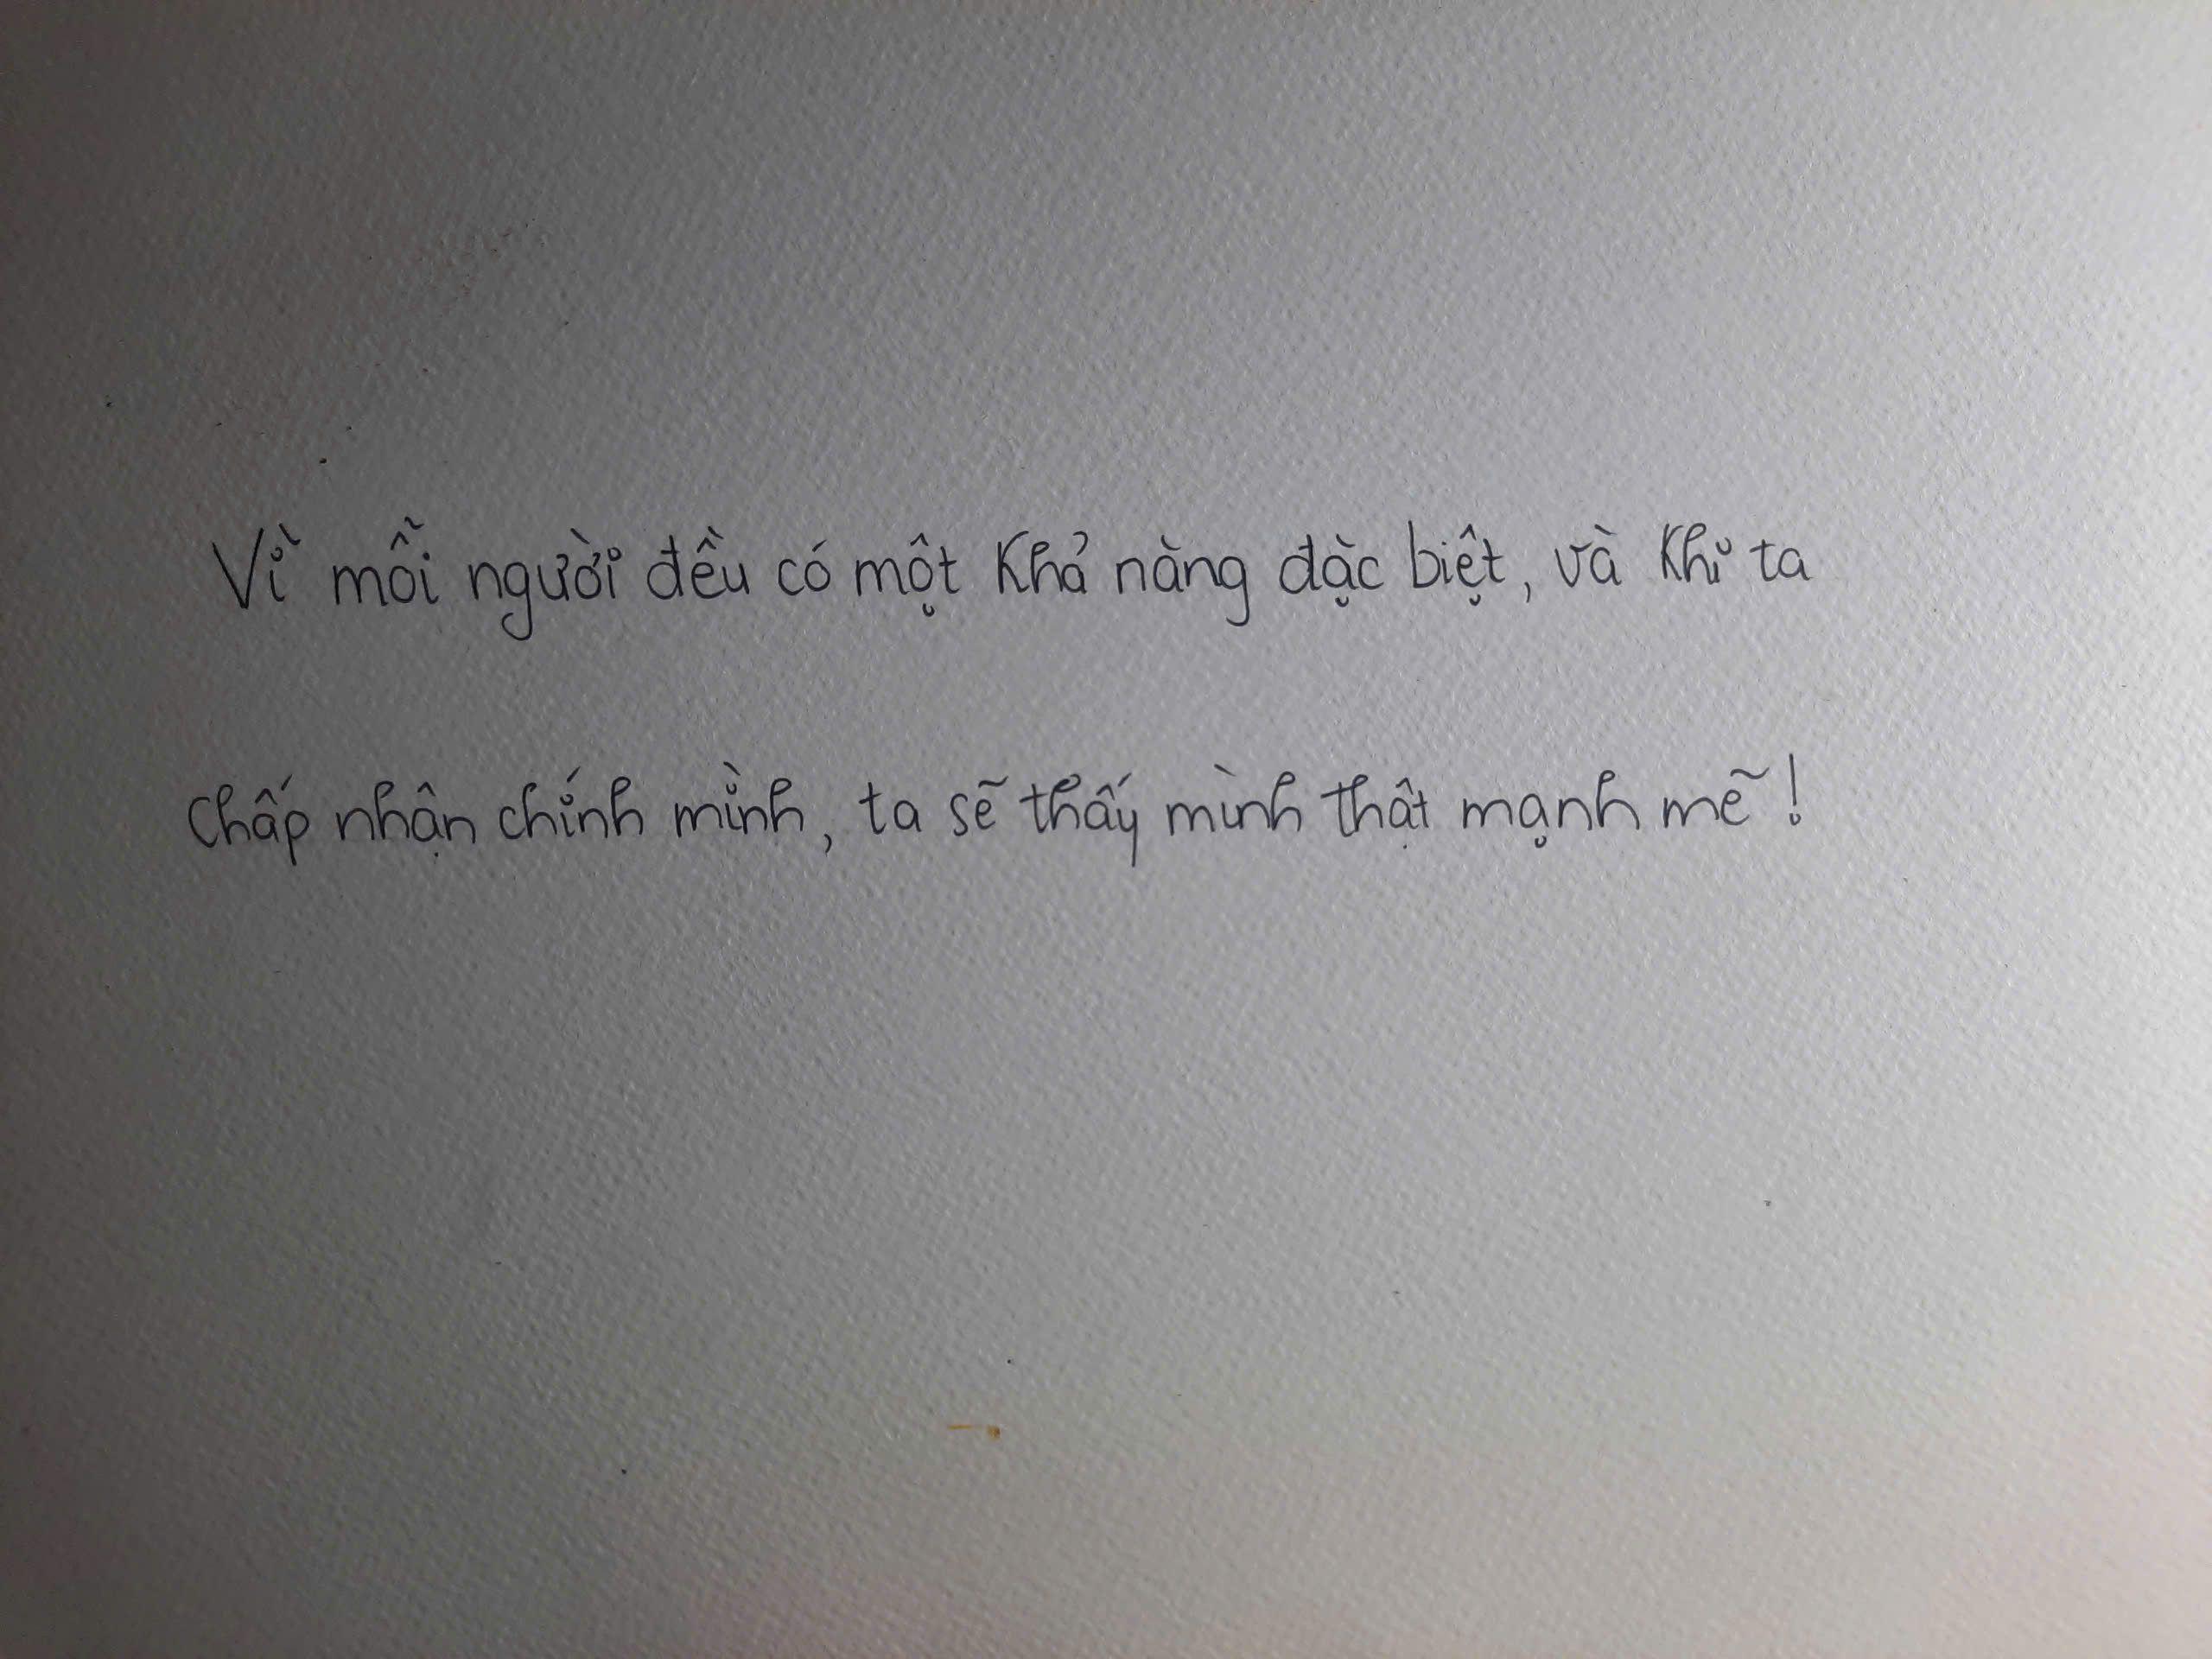 Vì mỗi người đều có một khả năng đặc biệt, và khi ta
chấp nhận chính mình, ta sẽ thấy mình thật mạnh mẽ!